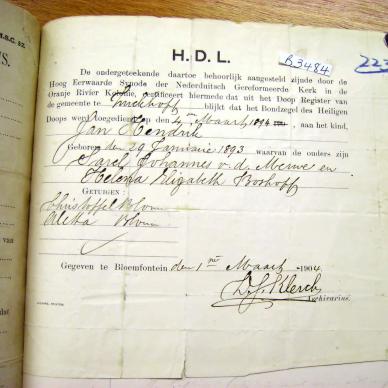 N.B.C. 52.
H. D. L.
B3484
223
De ondergeteekende daartoe behoorlijk aangesteld zijnde door de
Hoog Eerwaarde Synode der Nederduitsch Gereformeerde Kerk in de
Oranje Rivier Kolonie, certificeert hiermede dat uit het Doop Register van
de gemeente te blijkt dat het Bondzegel des Heiligen
Doops werd toegediend den 4 Maart aan het kind,
Jan Hendrik
Geboren den 29 Januarie 1893 waarvan de ouders zijn
Sarel Johannes v. d. Merwe en
Helena Elizabeth Boshoff
Getuigen:
Christoffel Blom
Aletta Blom
Gegeven te Bloemfontein den 1 Maart 1904
D. S. Klerck
Archivarius.